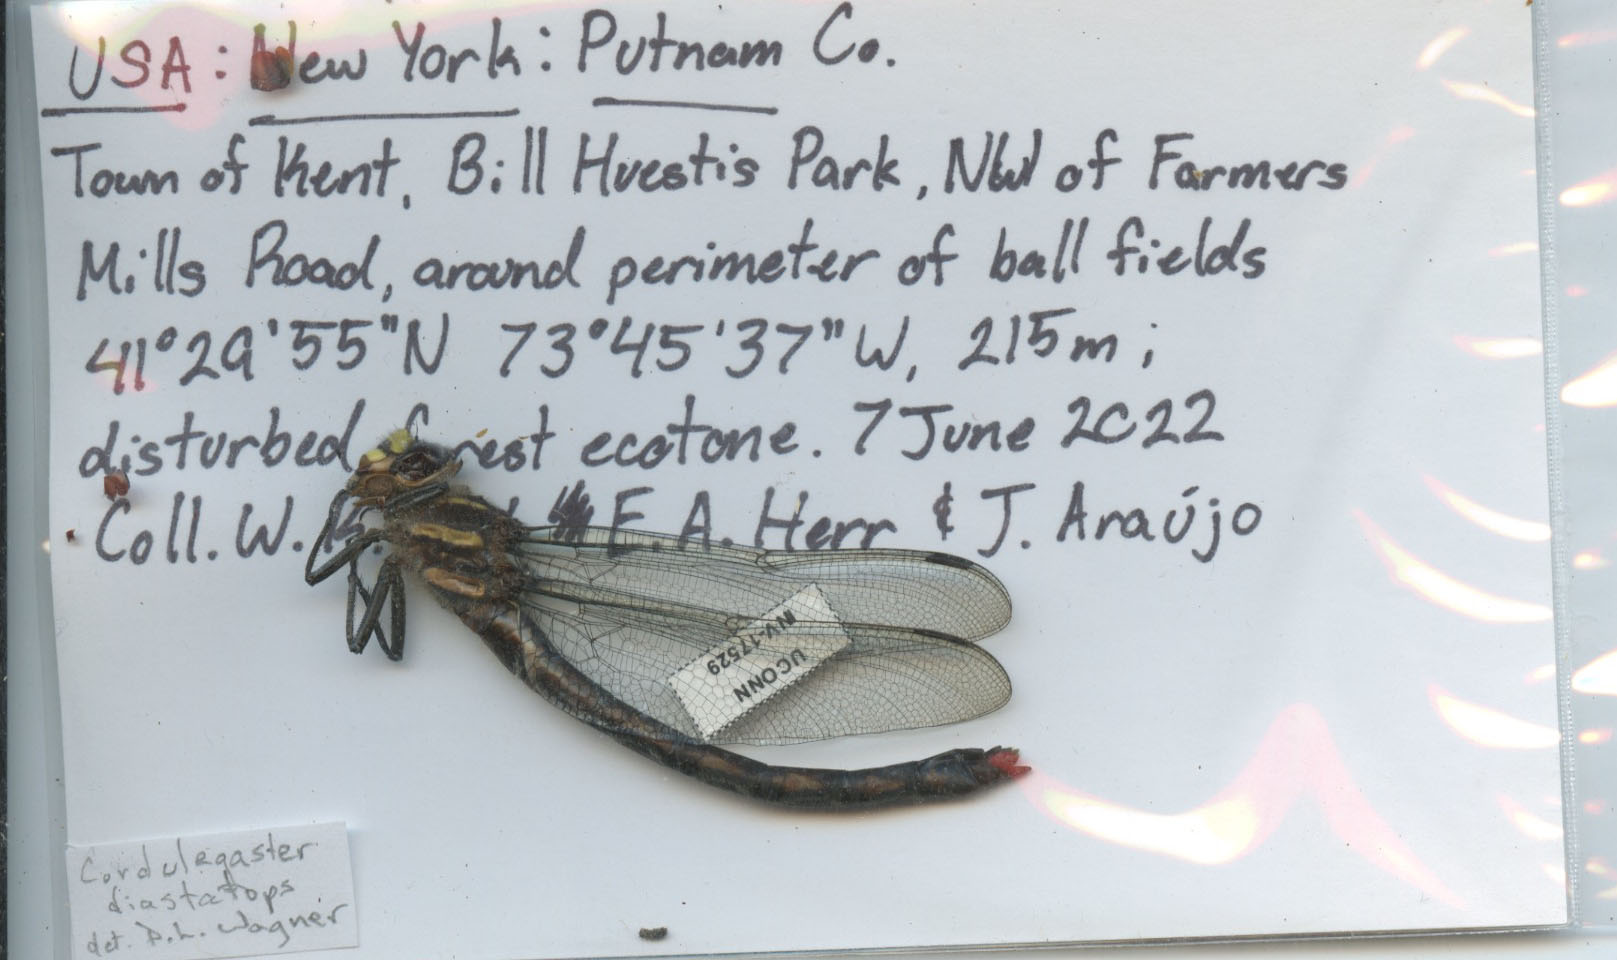 USA: New York: Putnam Co.
Town of Kent, Bill Huestis Park, NW of Farmers
Mills Road, around perimeter of ball fields
41°29'55"N 73°45'37"W, 215m;
disturbed forest ecotone. 7 June 2022
Coll. W. E. A. Herr & J. Araújo
UCONN
INV-17529
Cordulegaster
diastatops
det. D.L. Wagner